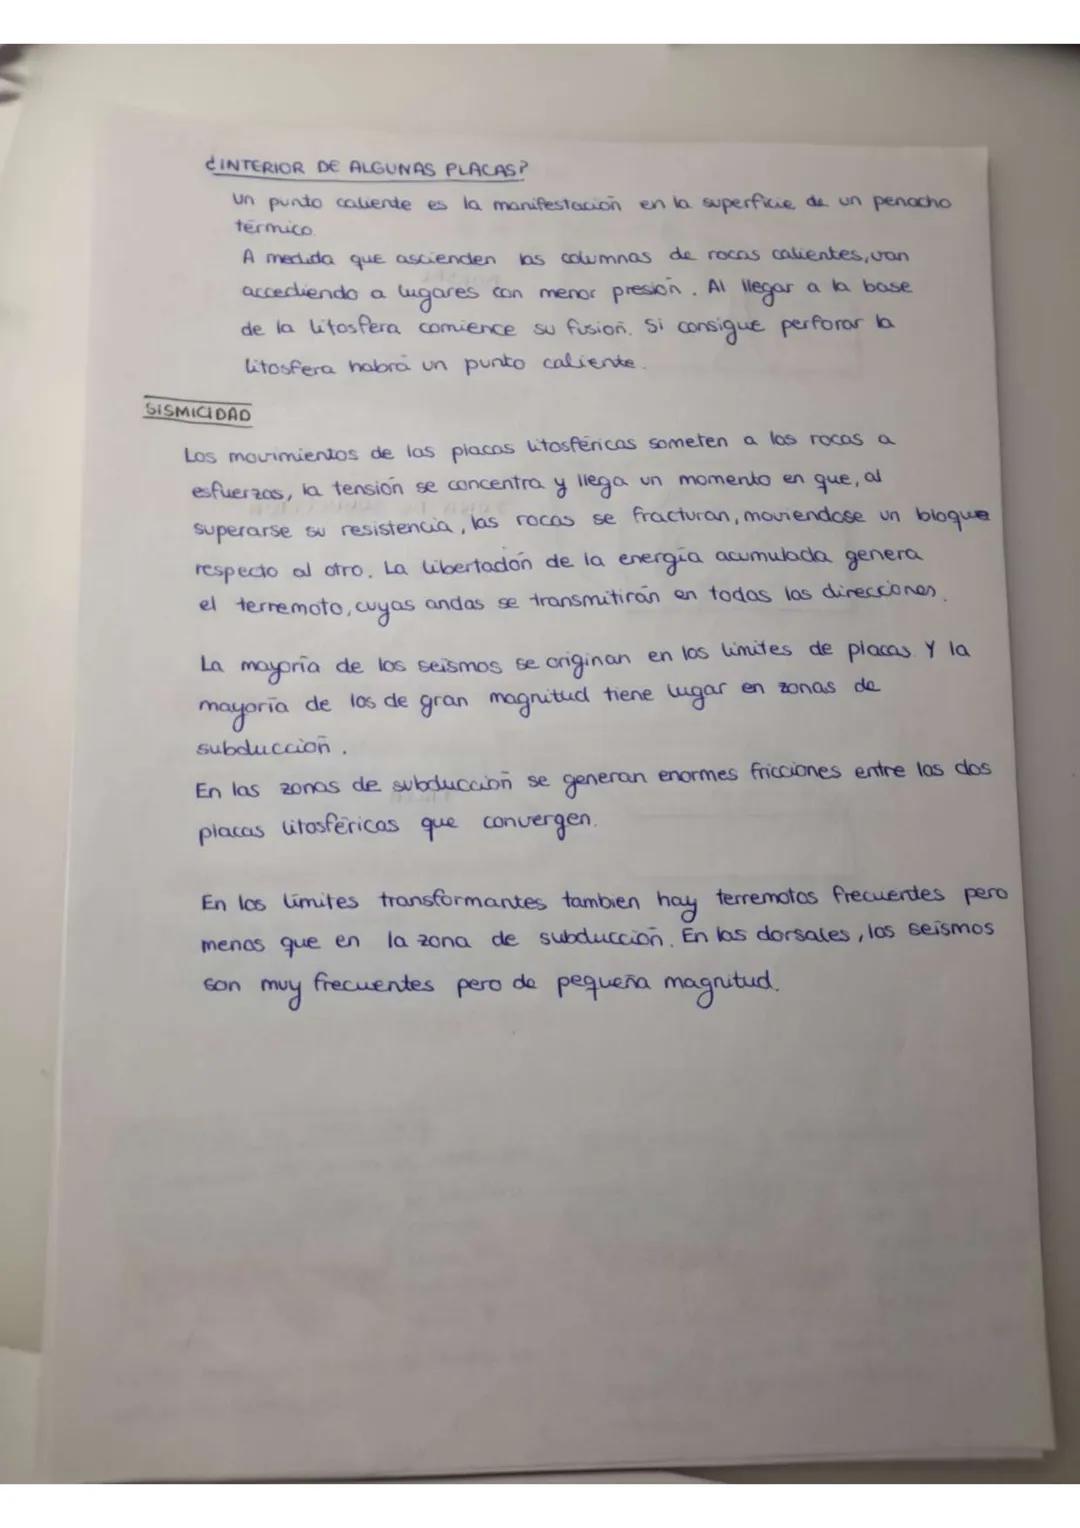 ¿INTERIOR DE ALGUNAS PLACAS?
Un punto caliente es la manifestación en la superficie de un penacho
térmico.
A medida que ascienden las columnas de rocas calientes, van
accediendo a lugares con menor presión. Al llegar a la base
de la litosfera comience su fusión. Si consigue perforar la
litosfera habrá un punto caliente.
SISMICIDAD
Los movimientos de las placas litosféricas someten a las rocas a
esfuerzos, la tensión se concentra y llega un momento en que, al
superarse su resistencia, las rocas se fracturan, moviendose un bloque
respecto al otro. La libertadón de la energía acumulada genera
el terremoto, cuyas andas se transmitirán en todas las direcciones.
La mayoría de los seísmos se originan en los límites de placas. Y la
mayoría de los de gran magnitud tiene lugar en zonas de
subducción.
En las zonas de subducción se generan enormes fricciones entre las dos
placas litosféricas que convergen.
En los límites transformantes tambien hay terremotos frecuentes pero
menos que en la zona de subducción. En las dorsales, los seísmos
son muy frecuentes pero de pequeña magnitud.